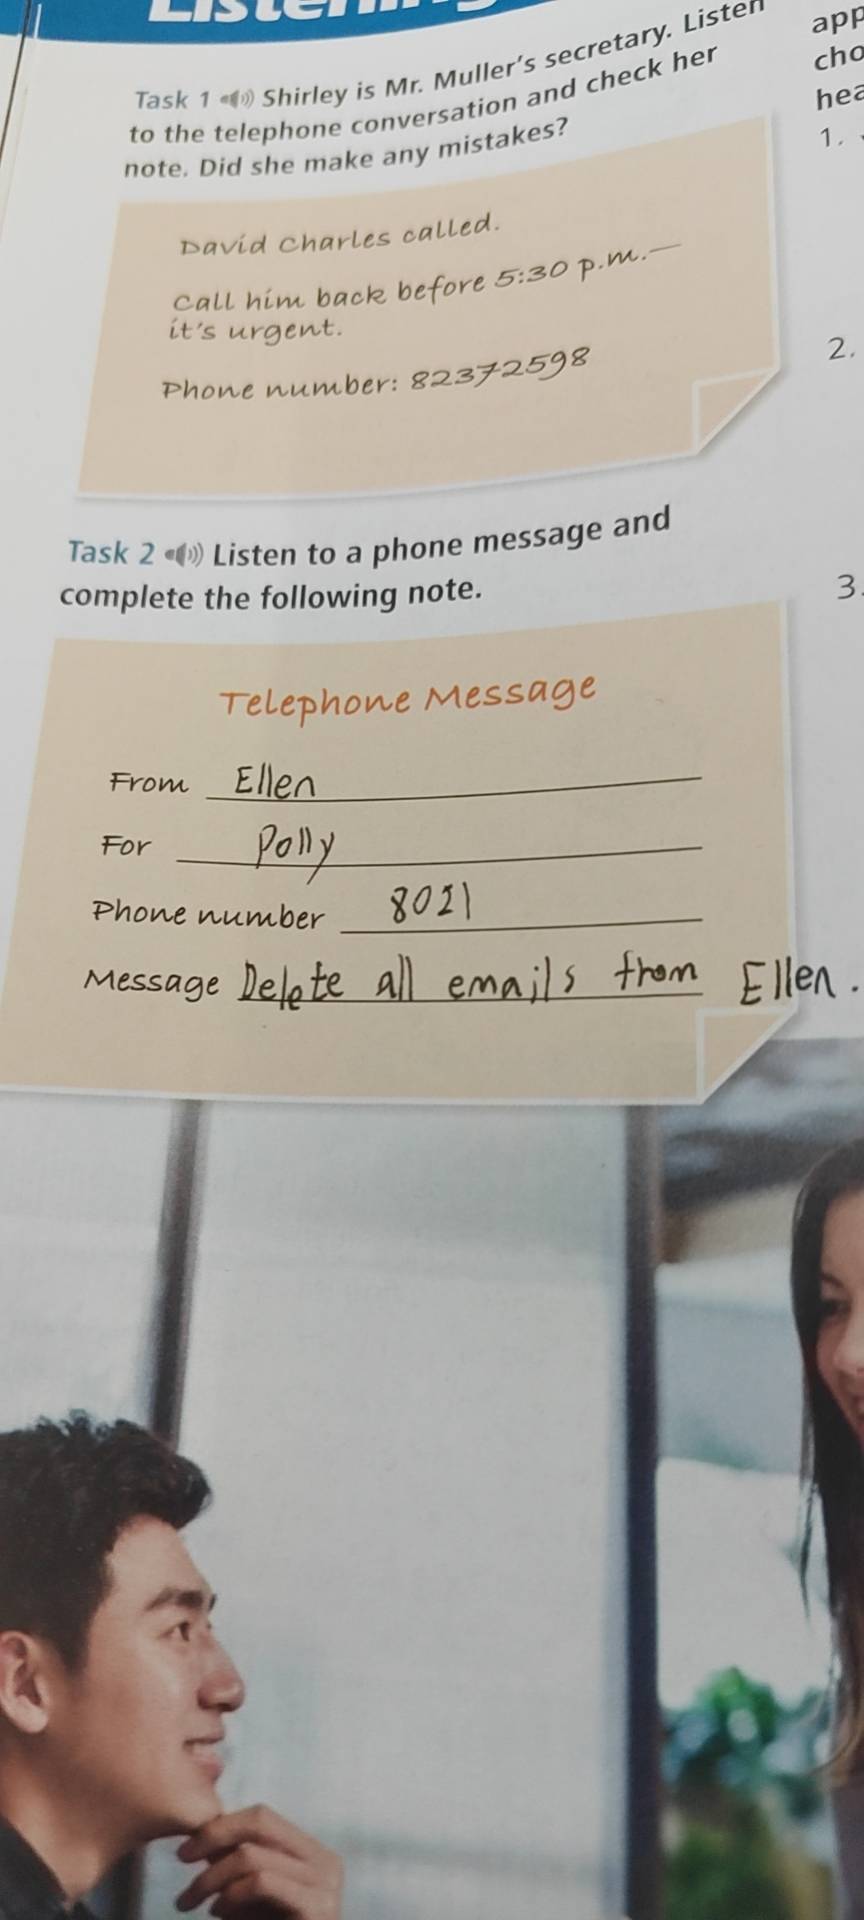 Listening
Task 1 Shirley is Mr. Muller's secretary. Listen
to the telephone conversation and check her
note. Did she make any mistakes?
David Charles called.
Call him back before 5:30 p.m.—
it's urgent.
Phone number: 82372598
Task 2 Listen to a phone message and
complete the following note.
Telephone Message
From Ellen
For Polly
Phone number 8021
Message Delete all emails from Ellen.
app
cho
hea
1.
2.
3.